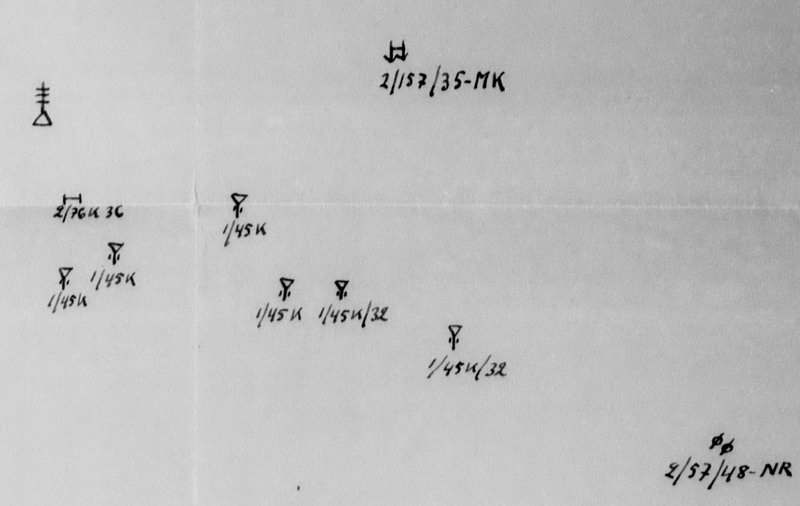 2/157/35-MK
2/76K 36
1/45K
1/45K
1/45K
1/45K
1/45K/32
1/45K/32
2/57/48-NR